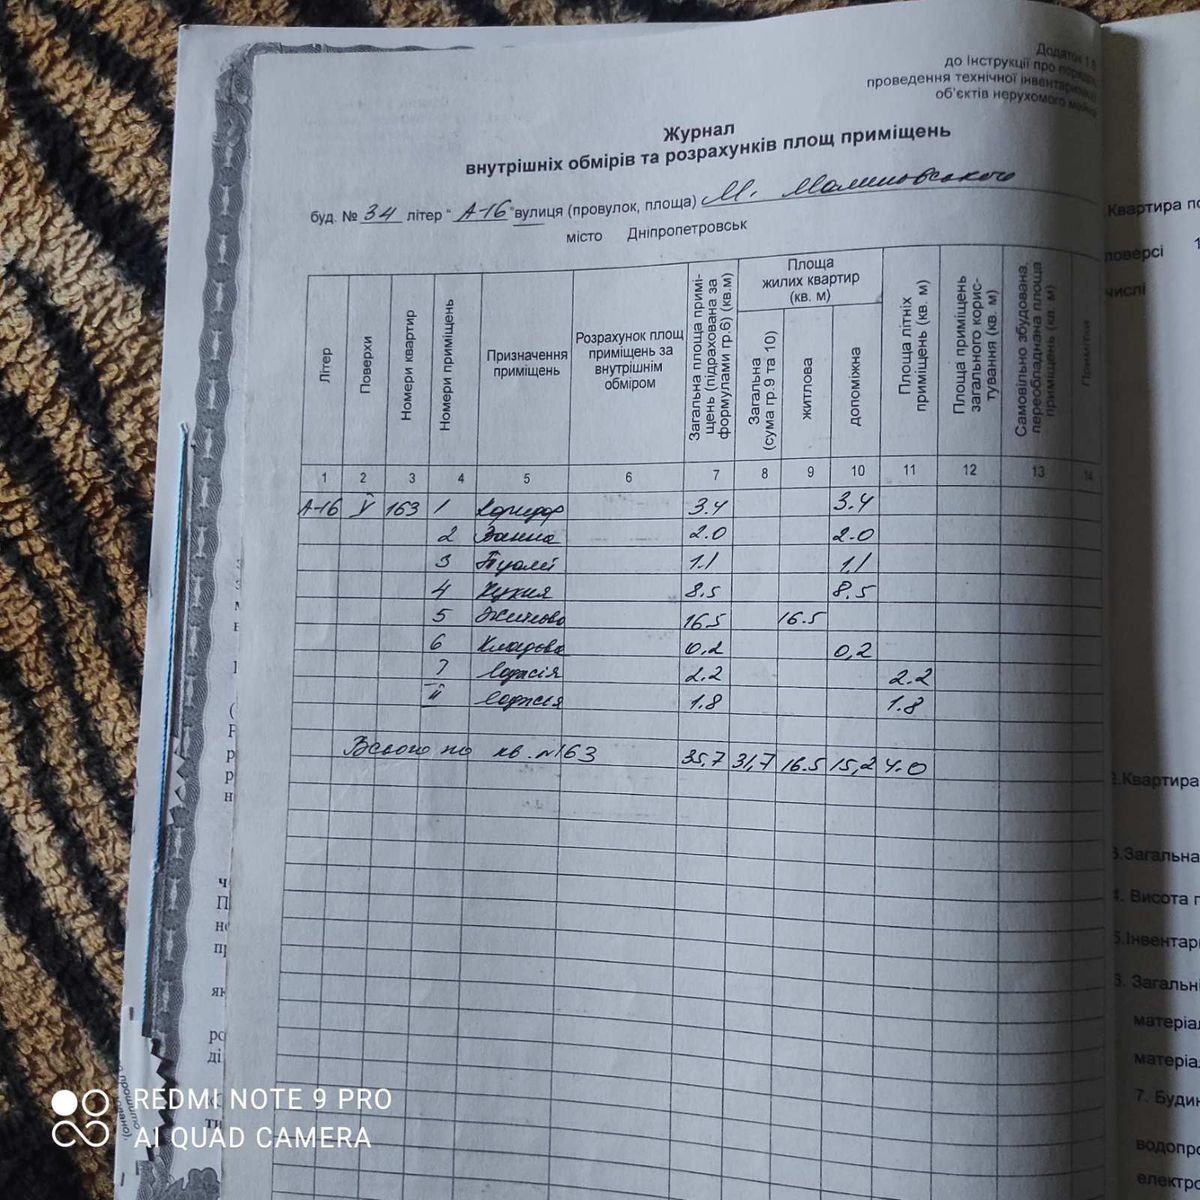 Додаток 1.8
до Інструкції про порядок
проведення технічної інвентаризації
об'єктів нерухомого майна
Журнал
внутрішніх обмірів та розрахунків площ приміщень
буд. № 34 літер "А-16" вулиця (провулок, площа) М. Малиновського
місто Дніпропетровськ
Літер
Поверхи
Номери квартир
Номери приміщень
Призначення приміщень
Розрахунок площ приміщень за внутрішнім обміром
Загальна площа приміщень (підрахована за формулами гр.6) (кв.м)
Площа жилих квартир (кв. м)
Загальна (сума гр.9 та 10)
житлова
допоміжна
Площа літніх приміщень (кв. м)
Площа приміщень загального користування (кв. м)
Самовільно збудована, переобладнана площа приміщень (кв. м)
Примітки
1 2 3 4 5 6 7 8 9 10 11 12 13 14
А-16 V 163 1 Коридор 3.4 3.4
2 Ванна 2.0 2.0
3 Туалет 1.1 1.1
4 Кухня 8.5 8.5
5 Житлова 16.5 16.5
6 Кладова 0,2 0,2
7 лоджія 2.2 2.2
II лоджія 1.8 1.8
Всього по кв. №163 35,7 31,7 16.5 15,2 4.0
Квартира
поверсі 1
числі
2.Квартира
3.Загальна
4. Висота
5.Інвентар
6. Загальні
матеріал
матеріал
7. Будин
водопро
електро
REDMI NOTE 9 PRO
AI QUAD CAMERA